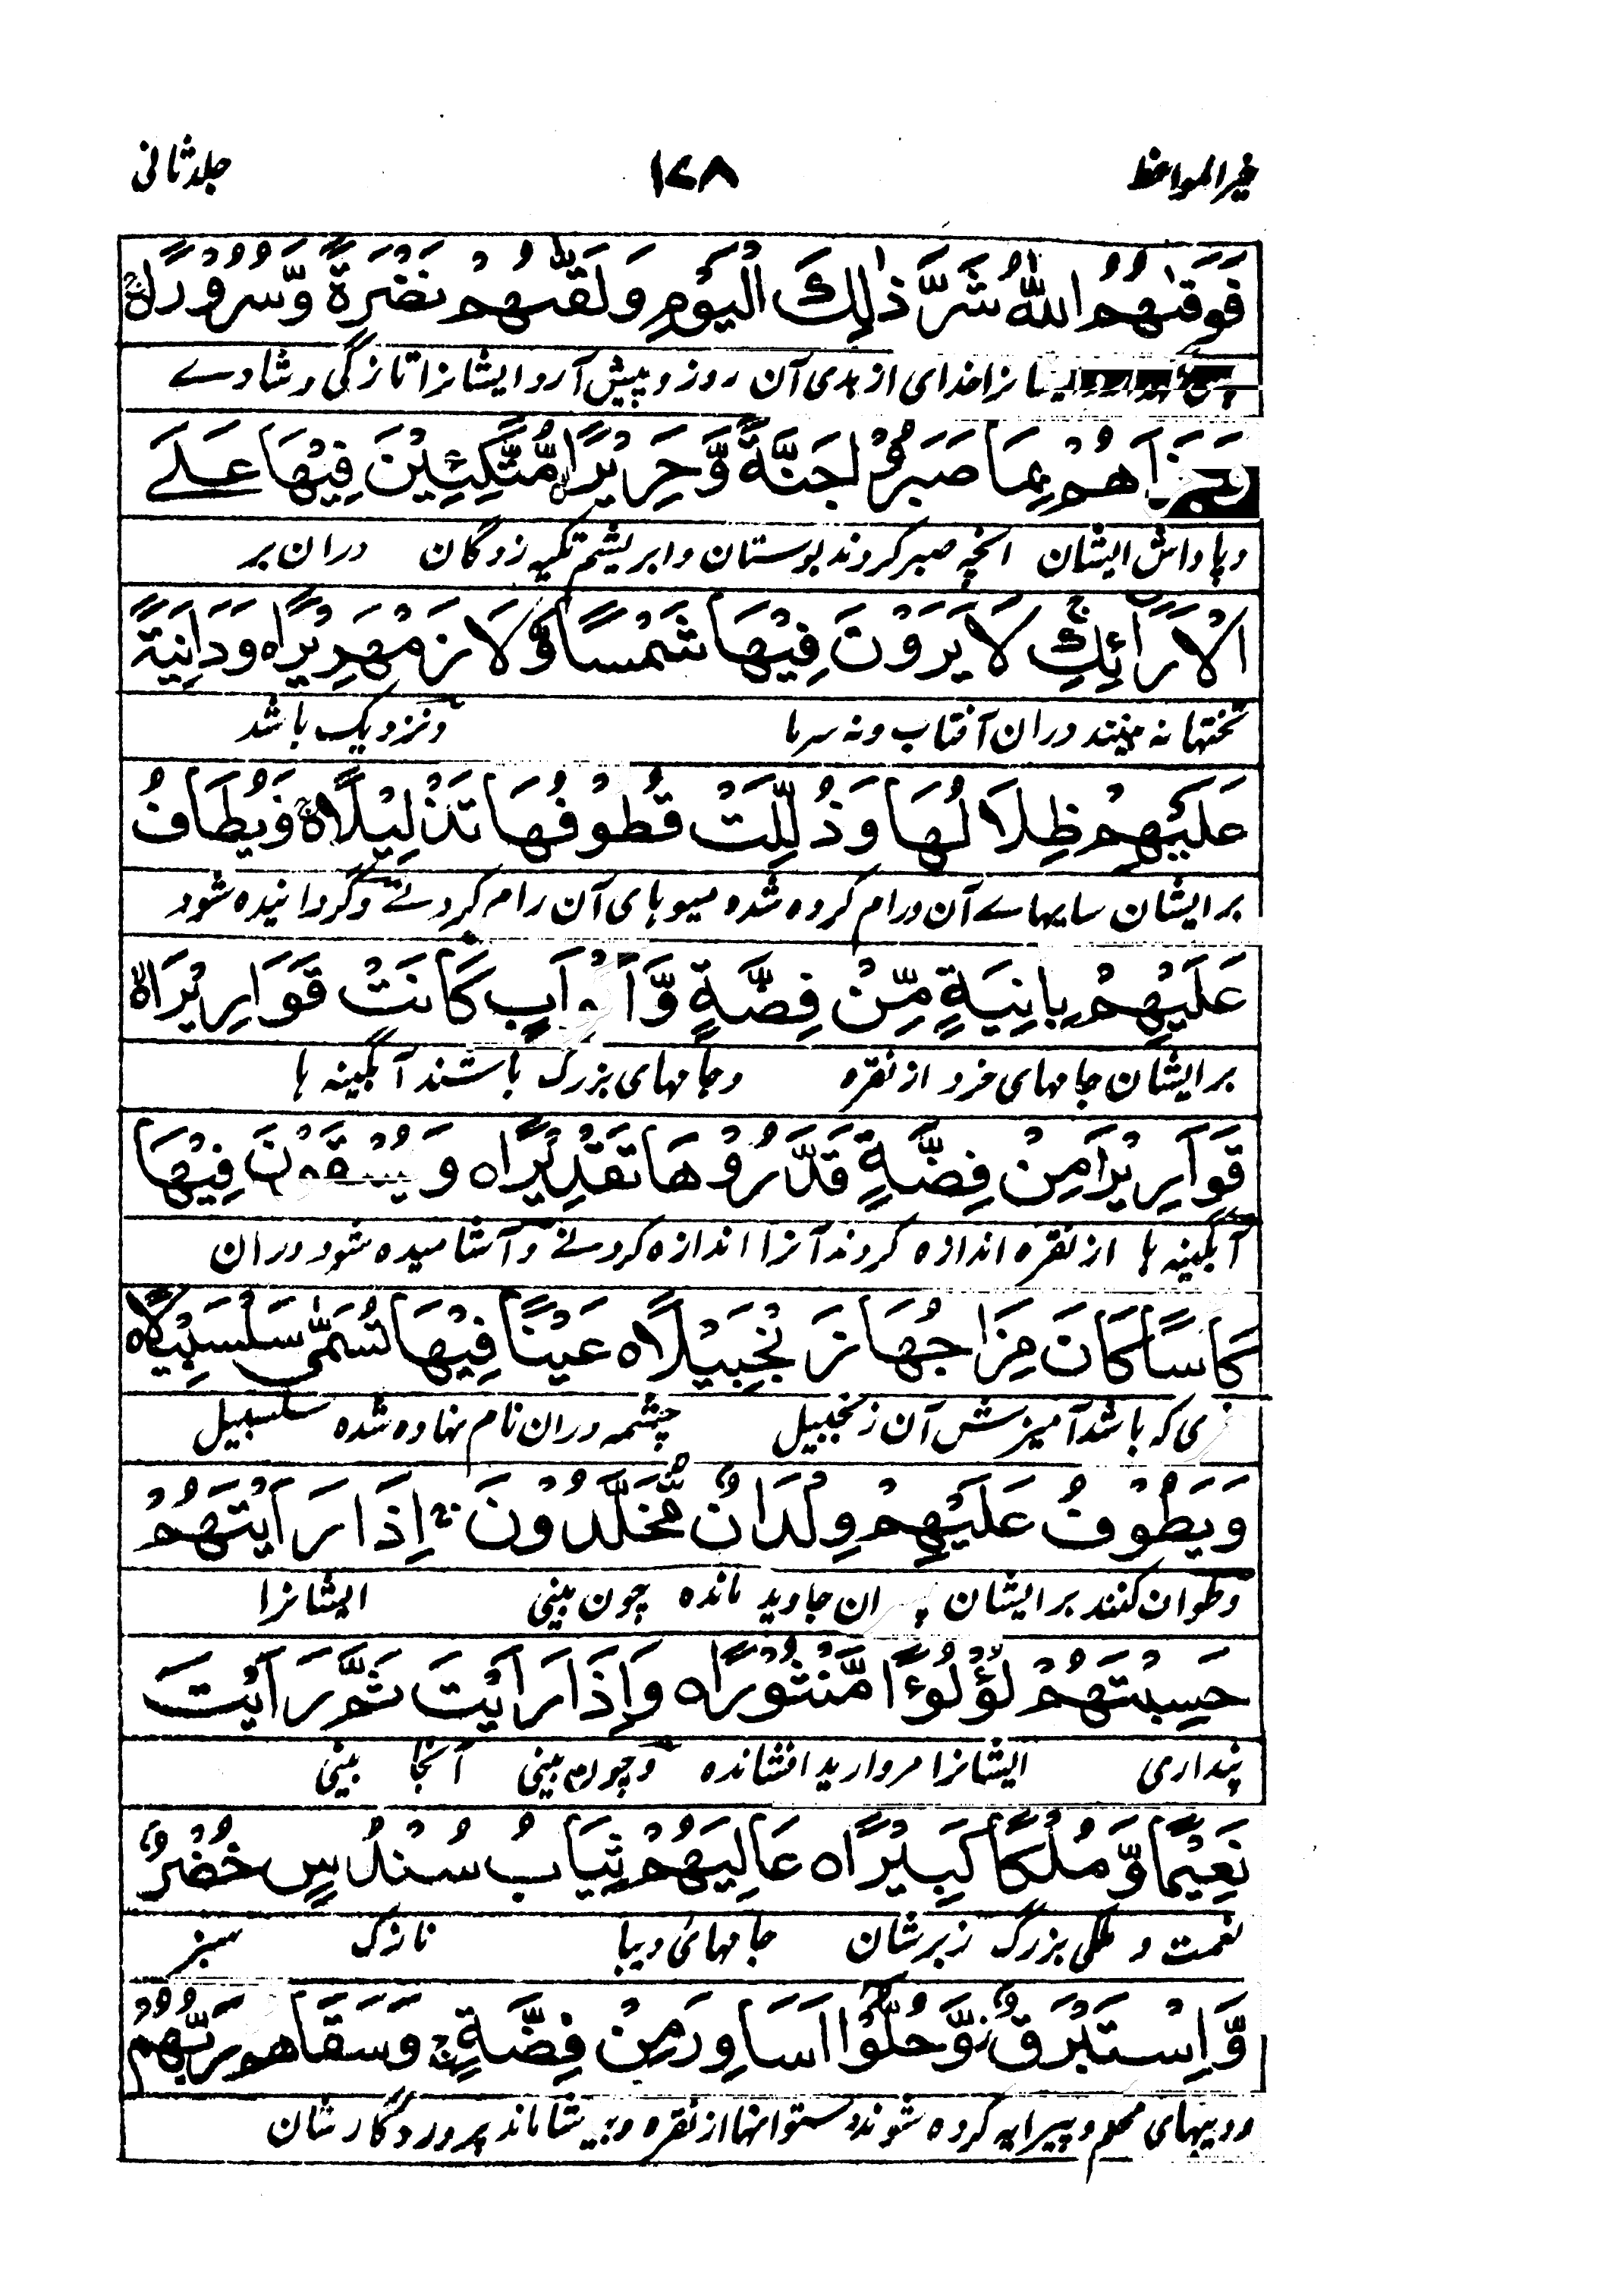 خیر المواعظ ۱۷۸ جلد ثانی
فَوَقٰىهُمُ اللّٰهُ شَرَّ ذٰلِكَ الْيَوْمِ وَلَقّٰىهُمْ نَضْرَةً وَّسُرُوْرًا
خدای از بدی آن روز و پیش آرد ایشانرا تازگی و شادے
وَجَزَاهُمْ بِمَا صَبَرُوْا جَنَّةً وَّحَرِيْرًا مُّتَّكِئِيْنَ فِيْهَا عَلَے
و پاداش ایشان انچه صبر کردند بوستان و ابریشم تکیه زدگان دران بر
الْاَرَآئِكِ لَا يَرَوْنَ فِيْهَا شَمْسًا وَّلَا زَمْهَرِيْرًا ه وَدَانِيَةً
تختها نه بینند دران آفتاب و نه سرما و نزدیک باشد
عَلَيْهِمْ ظِلَالُهَا وَذُلِّلَتْ قُطُوْفُهَا تَذْلِيْلًا ه وَيُطَافُ
بر ایشان سایهاے آن و رام کرده شده میوهای آن رام کردنے و گردانیده شود
عَلَيْهِمْ بِاٰنِيَةٍ مِّنْ فِضَّةٍ وَّاَكْوَابٍ كَانَتْ قَوَارِيْرَا
بر ایشان جامهای خرد از نقره و جامهای بزرگ باشند آبگینه ها
قَوَارِيْرَا مِنْ فِضَّةٍ قَدَّرُوْهَا تَقْدِيْرًا ه وَيُسْقَوْنَ فِيْهَا
آبگینه ها از نقره اندازه کردند آنرا اندازه کردنے و آشامیده شود دران
كَاْسًا كَانَ مِزَاجُهَا زَنْجَبِيْلًا ه عَيْنًا فِيْهَا تُسَمّٰى سَلْسَبِيْلًا ه
که باشد آمیزش آن زنجبیل چشمه دران نام نهاده شده سلسبیل
وَيَطُوْفُ عَلَيْهِمْ وِلْدَانٌ مُّخَلَّدُوْنَ ج اِذَا رَاَيْتَهُمْ
و طواف کنند بر ایشان پسران جاوید مانده چون بینی ایشانرا
حَسِبْتَهُمْ لُؤْلُوءًا مَّنْثُوْرًا ه وَاِذَا رَاَيْتَ ثَمَّ رَاَيْتَ
پنداری ایشانرا مروارید افشانده و چون بینی آنجا بینی
نَعِيْمًا وَّمُلْكًا كَبِيْرًا ه عَالِيَهُمْ ثِيَابُ سُنْدُسٍ خُضْرٌ
نعمت و ملکی بزرگ زبرشان جامهای دیبا نازک سبز
وَّاِسْتَبْرَقٌ وَّحُلُّوْا اَسَاوِرَ مِنْ فِضَّةٍ وَسَقَاهُمْ رَبُّهُمْ
و دیبهای محکم و پیرایه کرده شوند دستوانها از نقره و پروردگارشان